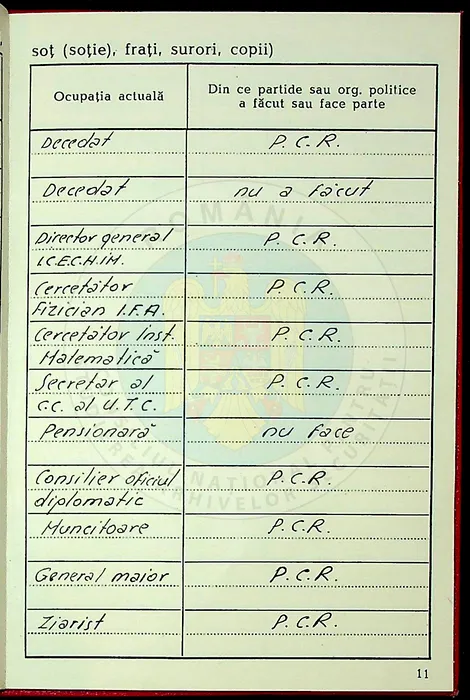 soț (soție), frați, surori, copii)
Ocupația actuală
Din ce partide sau org. politice
a făcut sau face parte
Decedat
P.C.R.
Decedat
nu a făcut
Director general
I.C.E.C.H.I.M.
P.C.R.
Cercetător
Fizician I.F.A.
P.C.R.
Cercetător Inst.
Matematică
P.C.R.
Secretar al
C.C. al U.T.C.
P.C.R.
Pensionară
nu face
Consilier oficiul
diplomatic
P.C.R.
Muncitoare
P.C.R.
General maior
P.C.R.
Ziarist
P.C.R.
11
ROMÂNIA